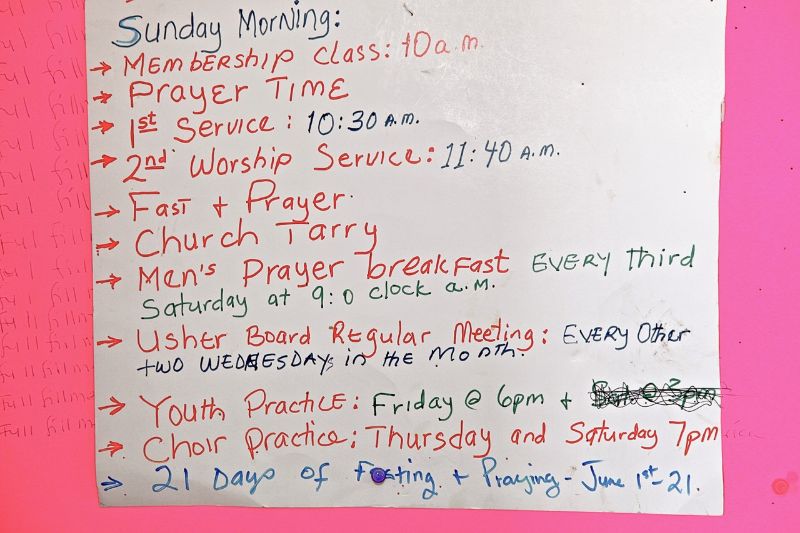 Sunday Morning:
→ Membership Class: 10 a.m.
→ Prayer Time
→ 1st Service: 10:30 A.M.
→ 2nd Worship Service: 11:40 A.M.
→ Fast + Prayer
→ Church Tarry
→ Men's Prayer breakfast EVERY Third
Saturday at 9:0 clock a.m.
→ Usher Board Regular Meeting: EVERY Other
two WEDNESDAYs in the Month.
→ Youth Practice: Friday @ 6pm +
→ Choir Practice: Thursday and Saturday 7pm
→ 21 Days of Fasting + Praying - June 1st - 21.